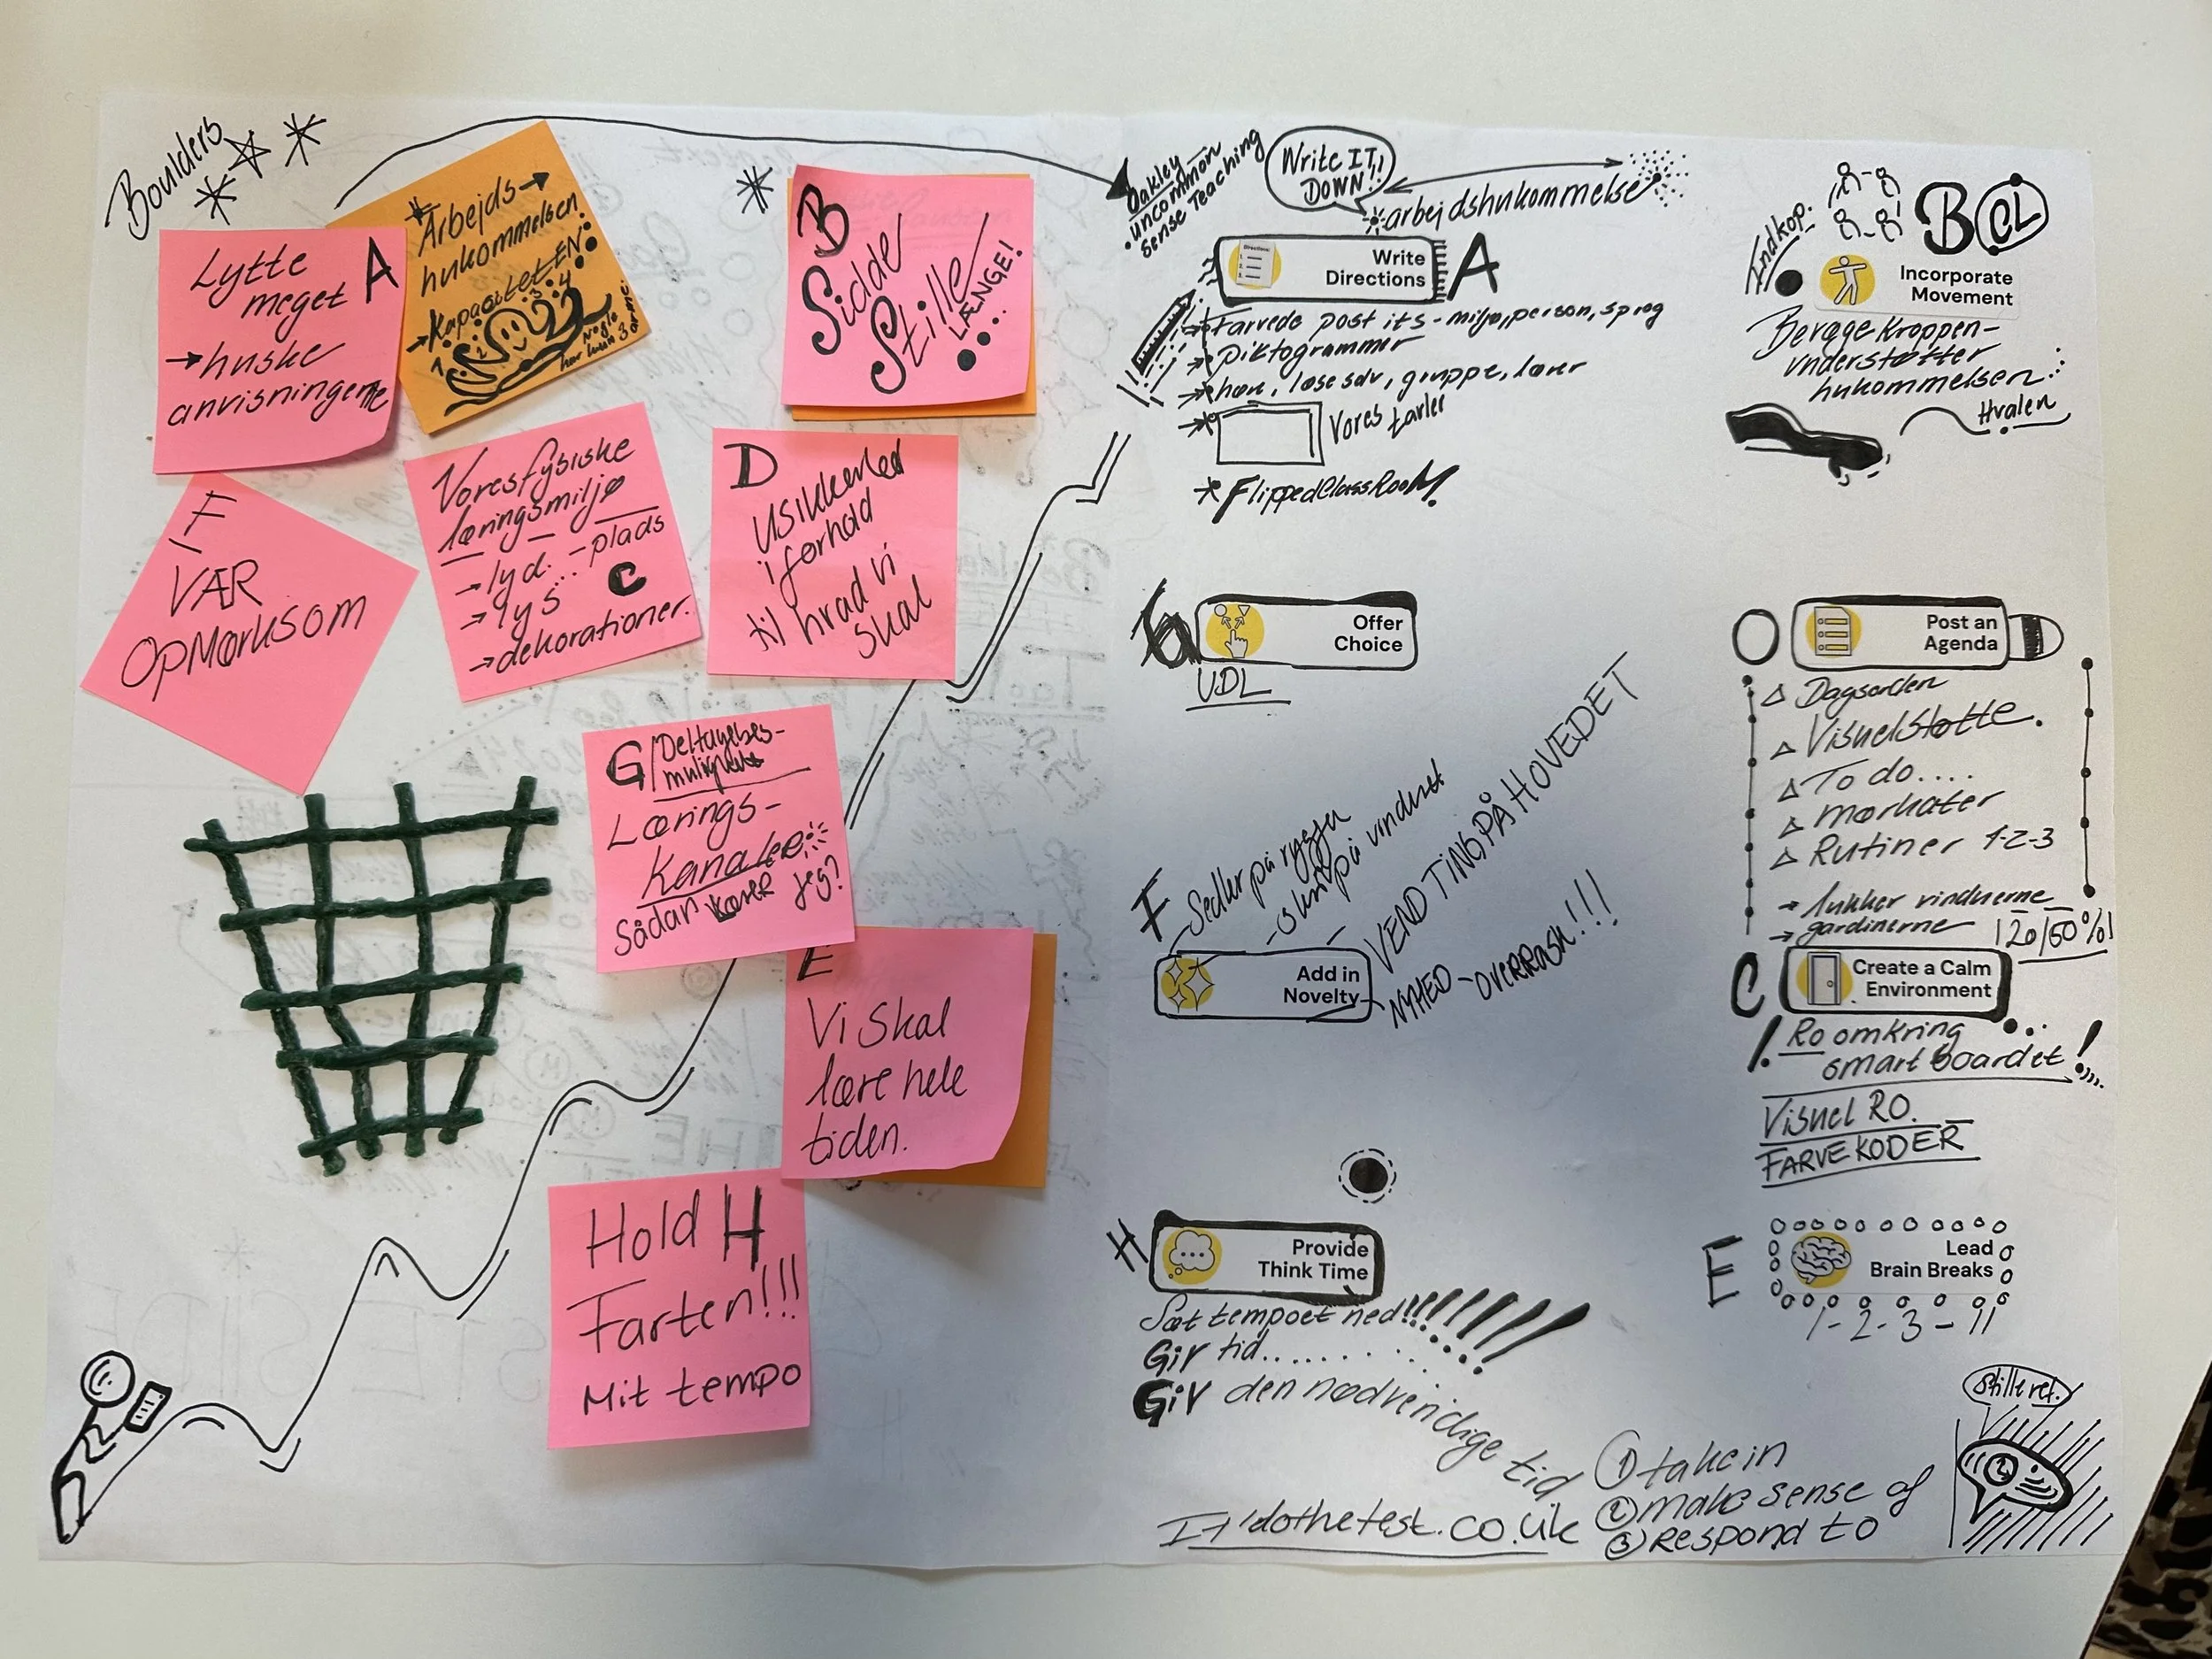 Boulders
Lytte
meget A
→ huske
anvisningerne
Arbejds →
hukommelsen
→ Kapaciteten
1 2 3 4
Nogle
har kun 3
B
Sidde
Stille
LÆNGE!
F
VÆR
OpMærksom
Vores fysiske
læringsmiljø
→ lyd... - plads
→ lys C
→ dekorationer.
D
Usikkerhed
i forhold
til hvad vi
skal
G/Deltagelses-
muligheds
Lærings-
Kanaler
Sådan lærer jeg?
E
Vi skal
lære hele
tiden.
Hold H
Farten!!!
Mit tempo
Oakley
uncommon
Sense Teaching
Write IT
DOWN!!
arbejdshukommelse
Write
Directions
A
Farvede post its - miljø, person, sprog
piktogrammer
hør, læse selv, gruppe, lærer
Vores tavler
FlippedClassRooM!
Indkop.
B CL
Incorporate
Movement
Bevæge kroppen -
understøtter
hukommelsen
Hvalen
G
Offer
Choice
UDL
Post an
Agenda
Dagsorden
Visuel støtte.
To do....
Mærkater
Rutiner 1-2-3
→ lukker vinduerne
→ gardinerne
120/50%!
F
Sedler på ryggen
- skriv på vinduet
VEND TING PÅ HOVEDET
NYHED - OVERRASK!!!
Add in
Novelty
C
Create a Calm
Environment
! Ro omkring
smart boardet!
Visuel RO.
FARVEKODER
H
Provide
Think Time
Sæt tempoet ned!!!!!!!!!
Giv tid........
Giv den nødvendige tid
E
Lead
Brain Breaks
1-2-3-11
dothetest.co.uk
① take in
② make sense of
③ respond to